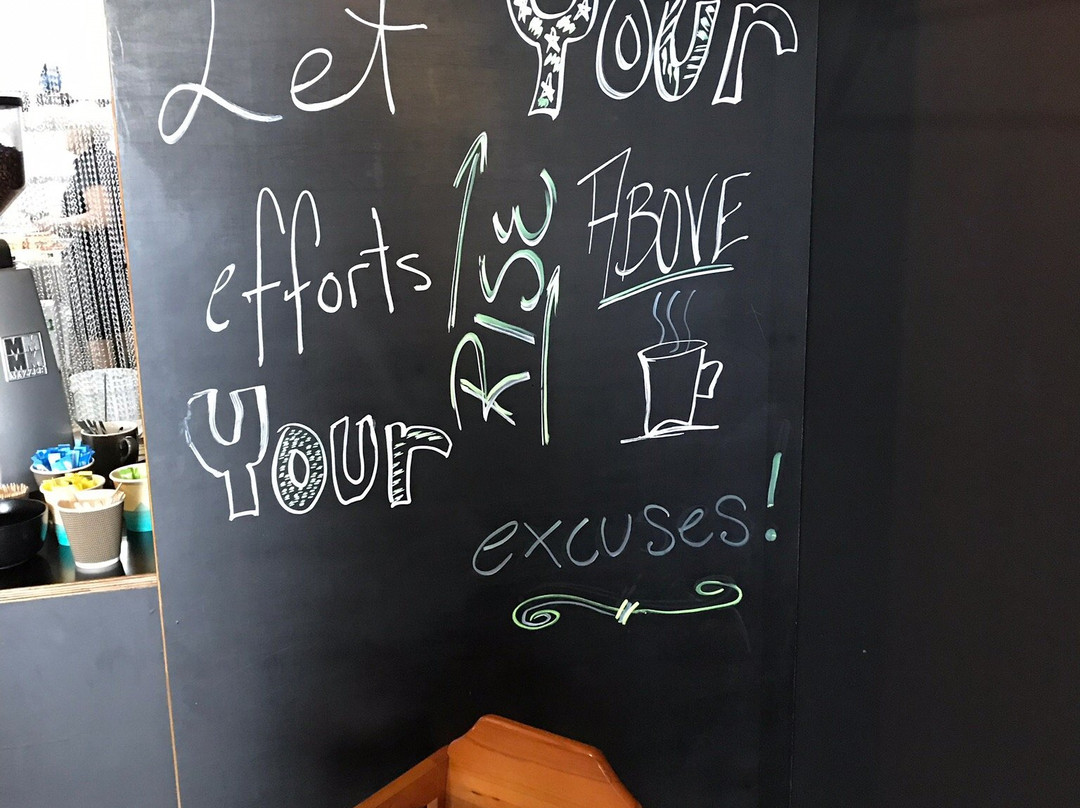 Let Your
efforts RISE ABOVE
Your
excuses!